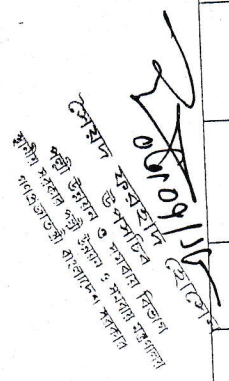 সৈয়দ ফরহাদ হোসেন
উপসচিব
পল্লী উন্নয়ন ও সমবায় বিভাগ
স্থানীয় সরকার পল্লী উন্নয়ন ও সমবায় মন্ত্রণালয়
গণপ্রজাতন্ত্রী বাংলাদেশ সরকার